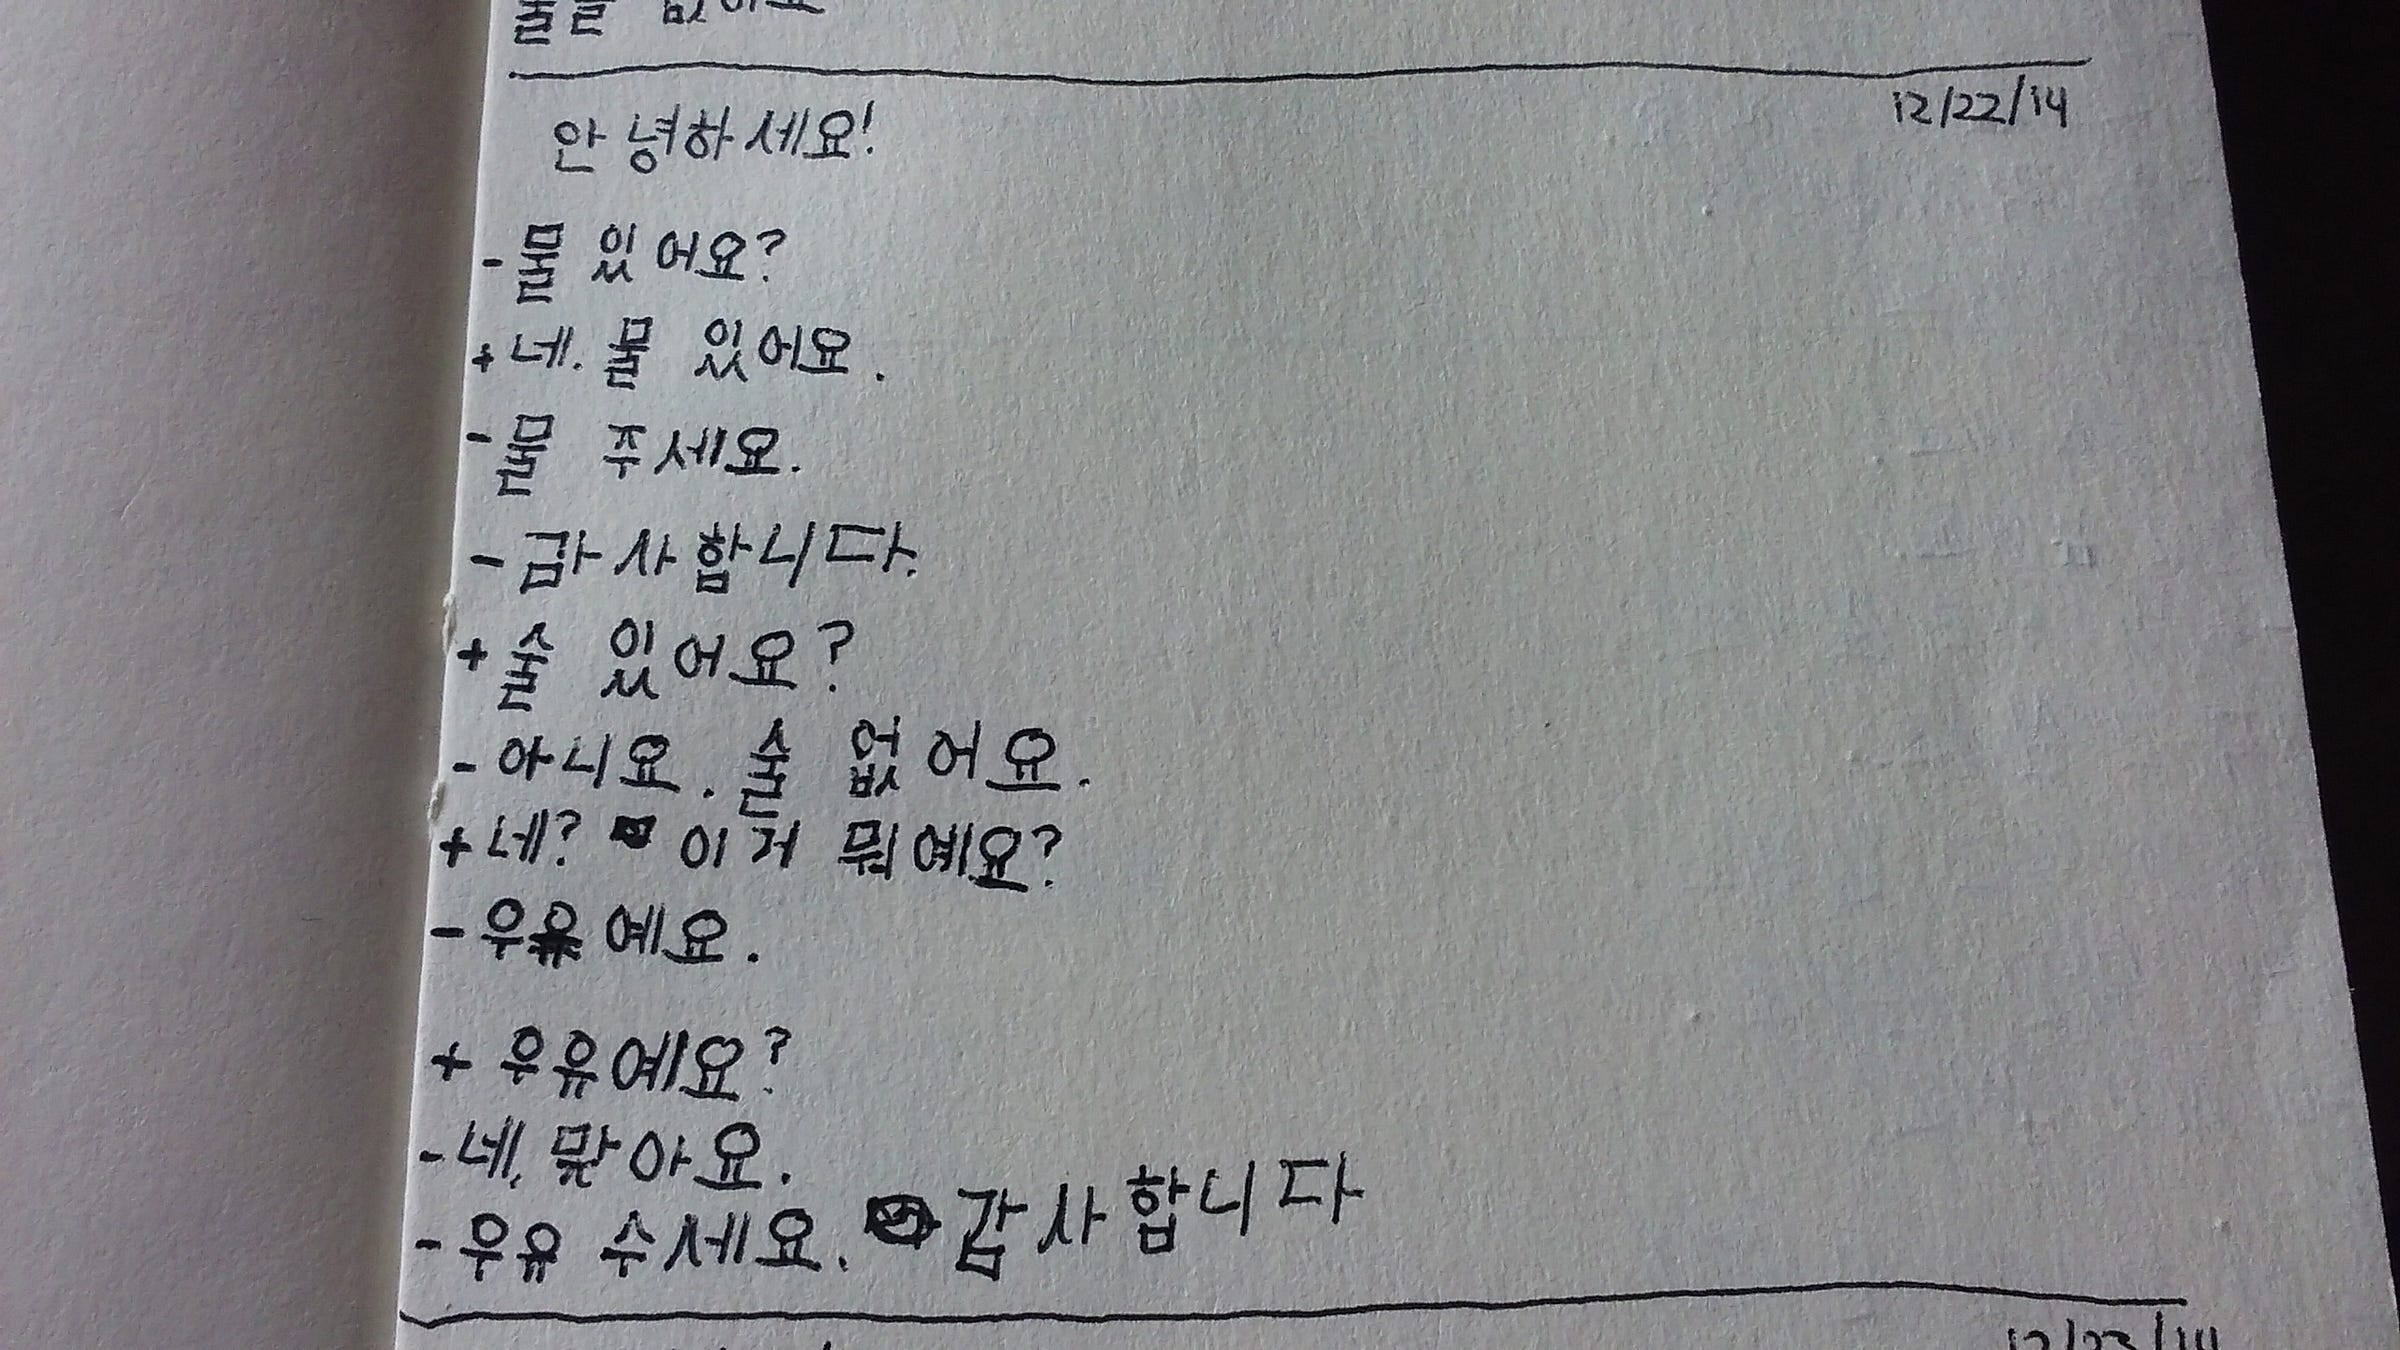 12/22/14
안녕하세요!
- 물 있어요?
+ 네. 물 있어요.
- 물 주세요.
- 감사합니다.
+ 술 있어요?
- 아니요. 술 없어요.
+ 네? 이거 뭐예요?
- 우유예요.
+ 우유예요?
- 네, 맞아요.
- 우유 수세요. 감사합니다